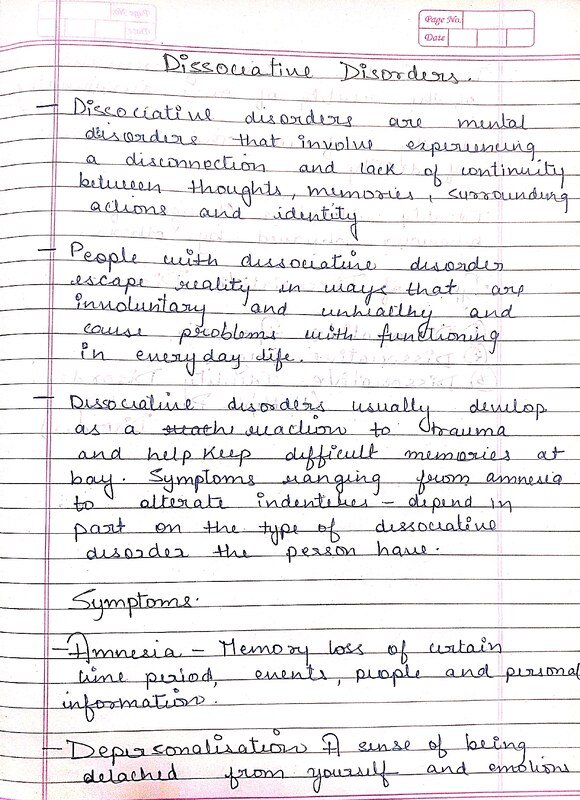 Page No.
Date
Dissociative Disorders.
- Dissociative disorders are mental
disorders that involve experiencing
a disconnection and lack of continuity
between thoughts, memories, surrounding
actions and identity
- People with dissociative disorder
escape reality in ways that are
involuntary and unhealthy and
cause problems with functioning
in everyday life.
- Dissociative disorders usually develop
as a reaction to trauma
and help keep difficult memories at
bay. Symptoms ranging from amnesia
to alterate indenteties - depend in
part on the type of dissociative
disorder the person have.
Symptoms.
- Amnesia - Memory loss of certain
time period, events, people and personal
information.
- Depersonalisation A sense of being
detached from yourself and emotions